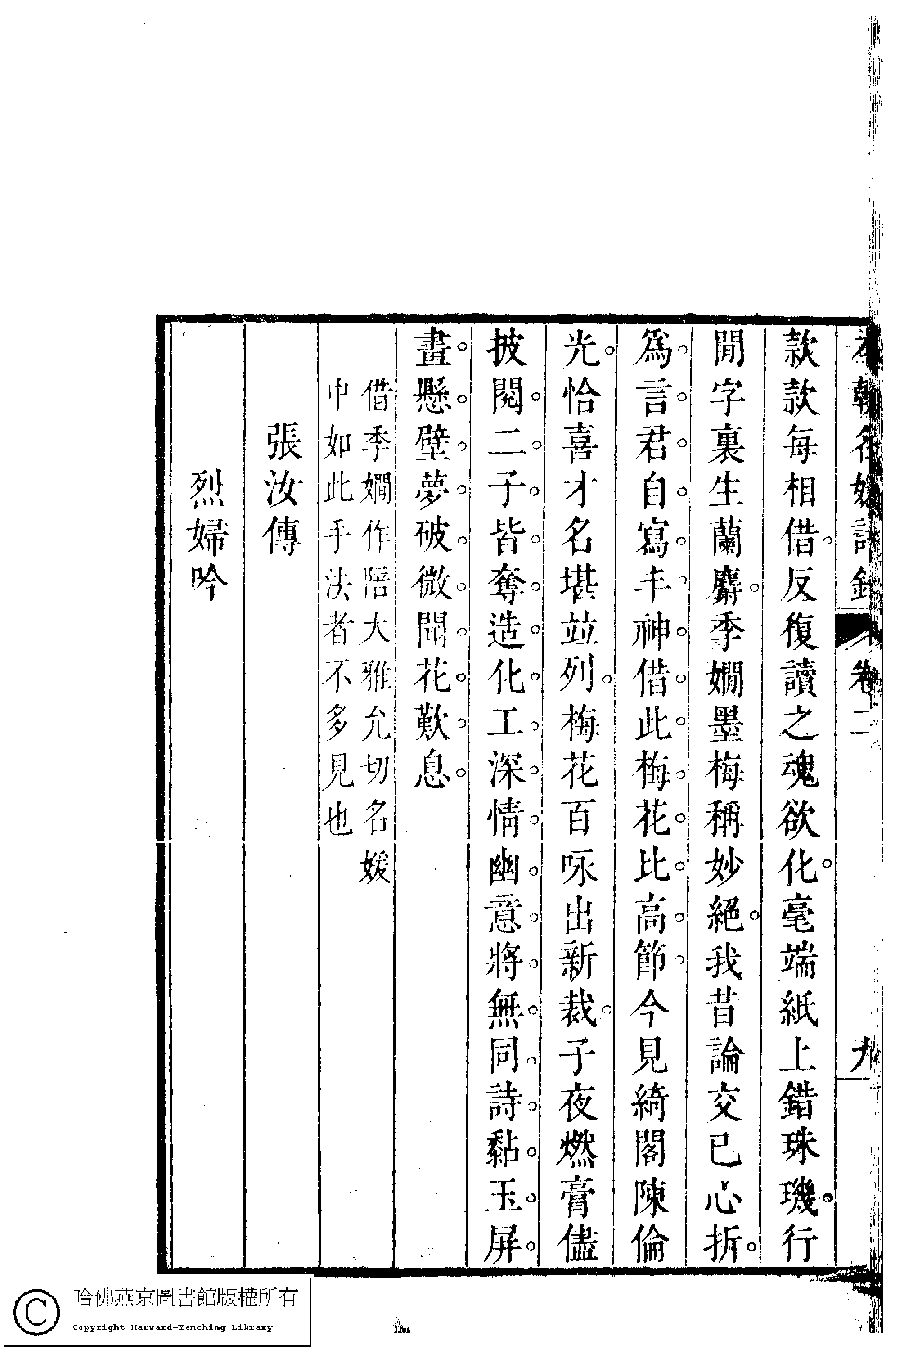 本朝名媛詩鈔 卷二 九
款款每相借反復讀之魂欲化毫端紙上錯珠璣行
閒字裏生蘭麝季嫺墨梅稱妙絕我昔論交已心折
為言君自寫丰神借此梅花比高節今見綺閣陳倫
光恰喜才名堪並列梅花百咏出新裁子夜燃膏儘
披閱二子皆奪造化工深情幽意將無同詩黏玉屏
畫懸壁夢破微聞花歎息
借季嫺作陪大雅允切名媛
中如此手法者不多見也
張汝傳
烈婦吟
哈佛燕京圖書館版權所有
Copyright Harvard-Yenching Library